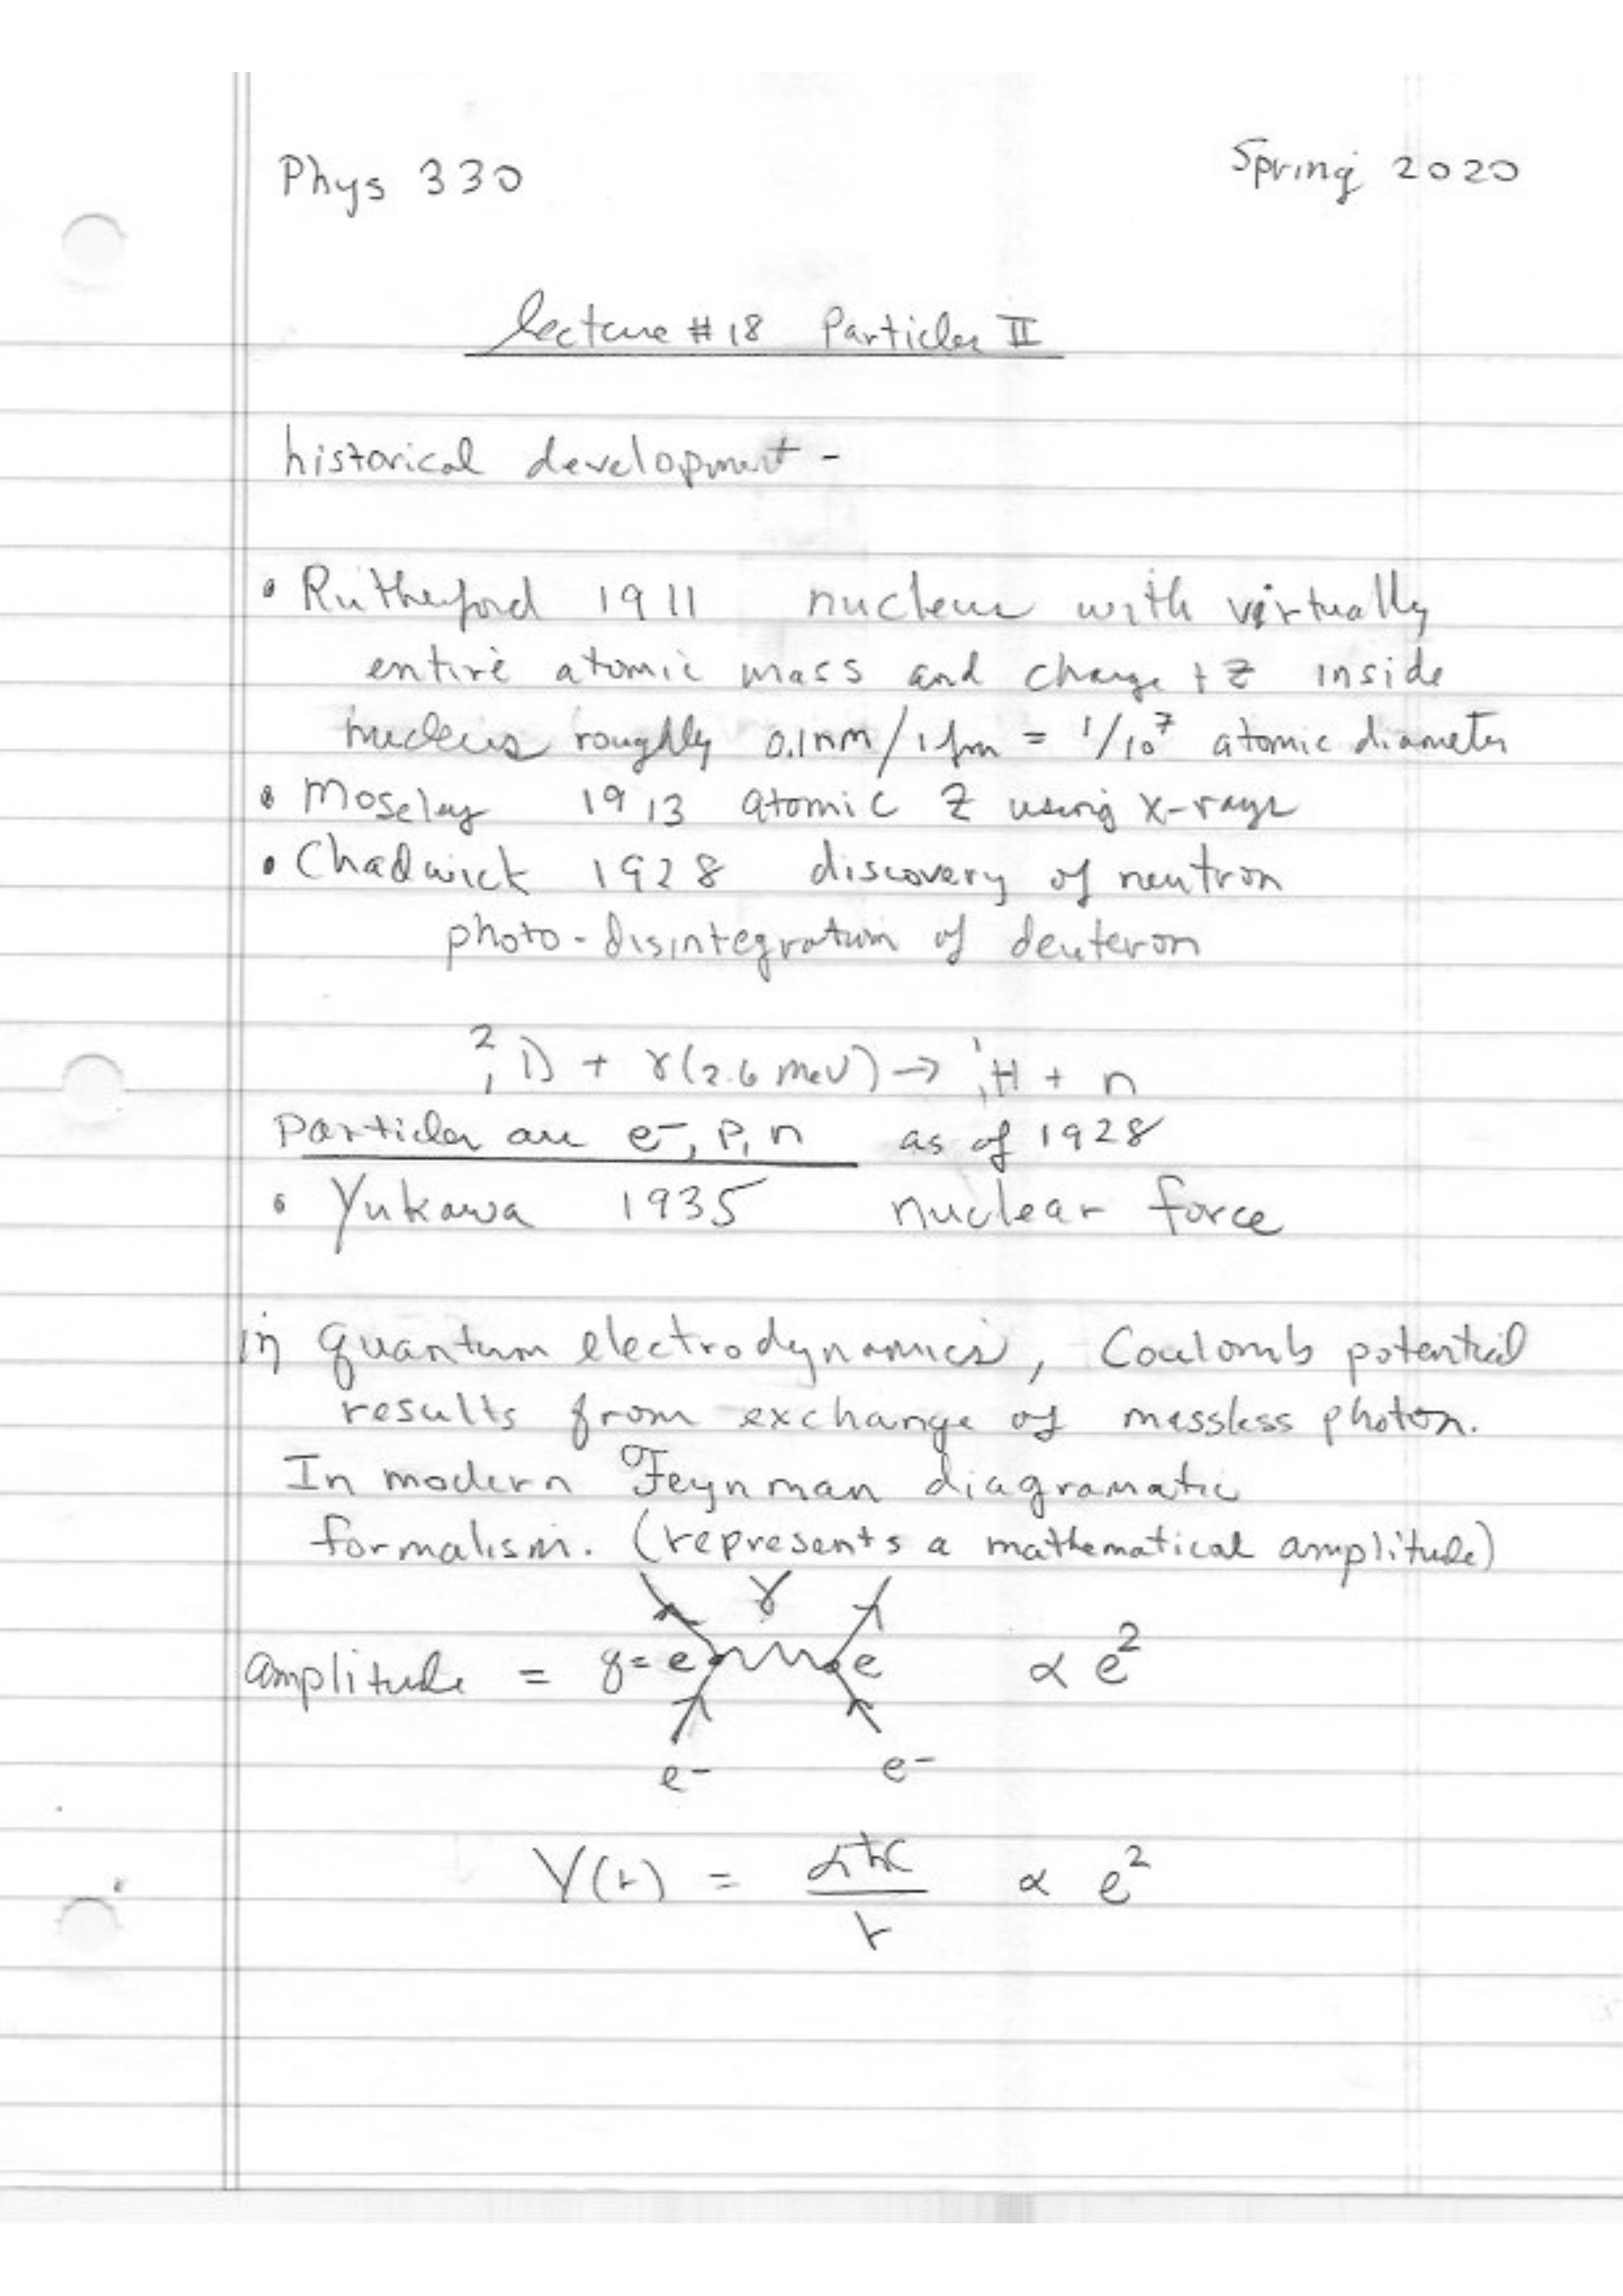 Phys 330 Spring 2020
Lecture #18 Particles II
historical development -
• Rutherford 1911 nucleus with virtually
entire atomic mass and charge +Z inside
nucleus roughly 0.1nm/1fm = 1/10⁷ atomic diameter
• Moseley 1913 atomic Z using x-rays
• Chadwick 1928 discovery of neutron
photo-disintegration of deuteron
²₁D + γ(2.6 MeV) → ¹₁H + n
Particles are e⁻, p, n as of 1928
• Yukawa 1935 nuclear force
in quantum electrodynamics, Coulomb potential
results from exchange of massless photon.
In modern Feynman diagramatic
formalism. (represents a mathematical amplitude)
γ
amplitude = g=e e ∝ e²
e⁻ e⁻
V(r) = αħc/r ∝ e²